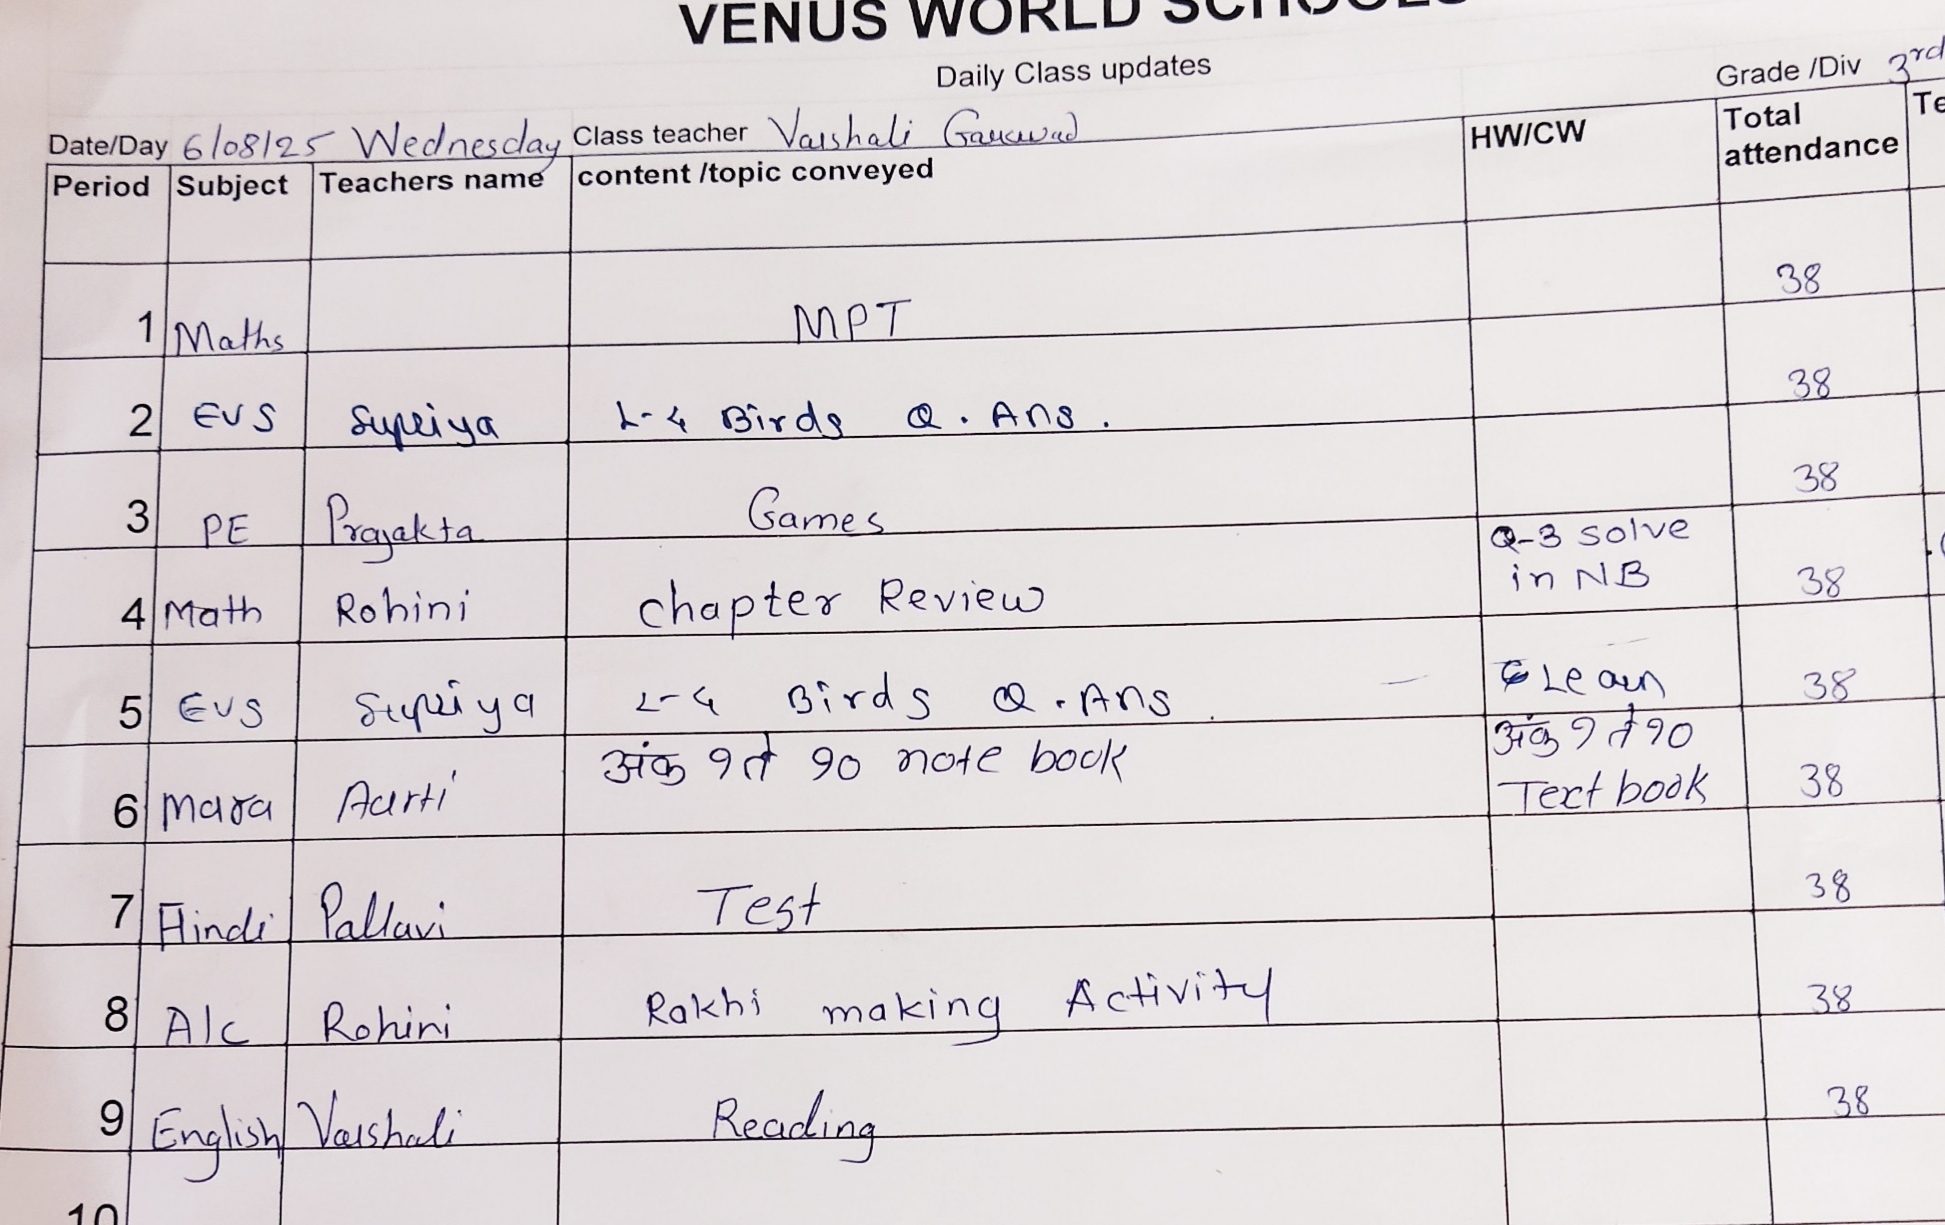 VENUS WORLD SCHOOLS
Daily Class updates
Grade /Div 3rd
Date/Day 6/08/25 Wednesday Class teacher Vaishali Gaikwad
Period Subject Teachers name content /topic conveyed HW/CW Total attendance Te
1 Maths MPT 38
2 EVS Supriya L-4 Birds Q. Ans. 38
3 PE Prajakta Games 38
4 Math Rohini chapter Review Q-3 solve in NB 38
5 EVS Supriya L-4 Birds Q. Ans. Learn 38
6 Mara Aarti अंक १ ते १० note book अंक १ ते १० Text book 38
7 Hindi Pallavi Test 38
8 A/c Rohini Rakhi making Activity 38
9 English Vaishali Reading 38
10